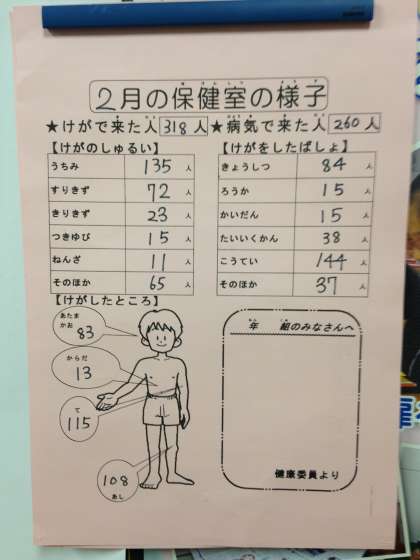 2月の保健室の様子
★けがで来た人 318人 ★病気で来た人 260人
【けがのしゅるい】
うちみ 135人
すりきず 72人
きりきず 23人
つきゆび 15人
ねんざ 11人
そのほか 65人
【けがをしたばしょ】
きょうしつ 84人
ろうか 15人
かいだん 15人
たいいくかん 38人
こうてい 144人
そのほか 37人
【けがしたところ】
あたま
かお 83
からだ
13
て
115
108
あし
年 組のみなさんへ
健康委員より